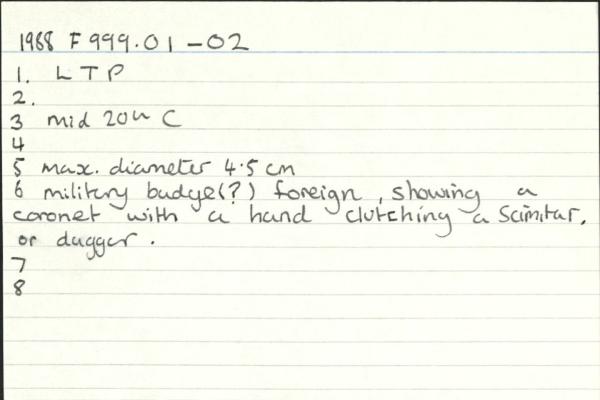 1988 F 999.01 - 02
1. LTP
2.
3 mid 20th C
4
5 max. diameter 4.5 cm
6 military badge(?) foreign, showing a
coronet with a hand clutching a Scimitar,
or dagger.
7
8